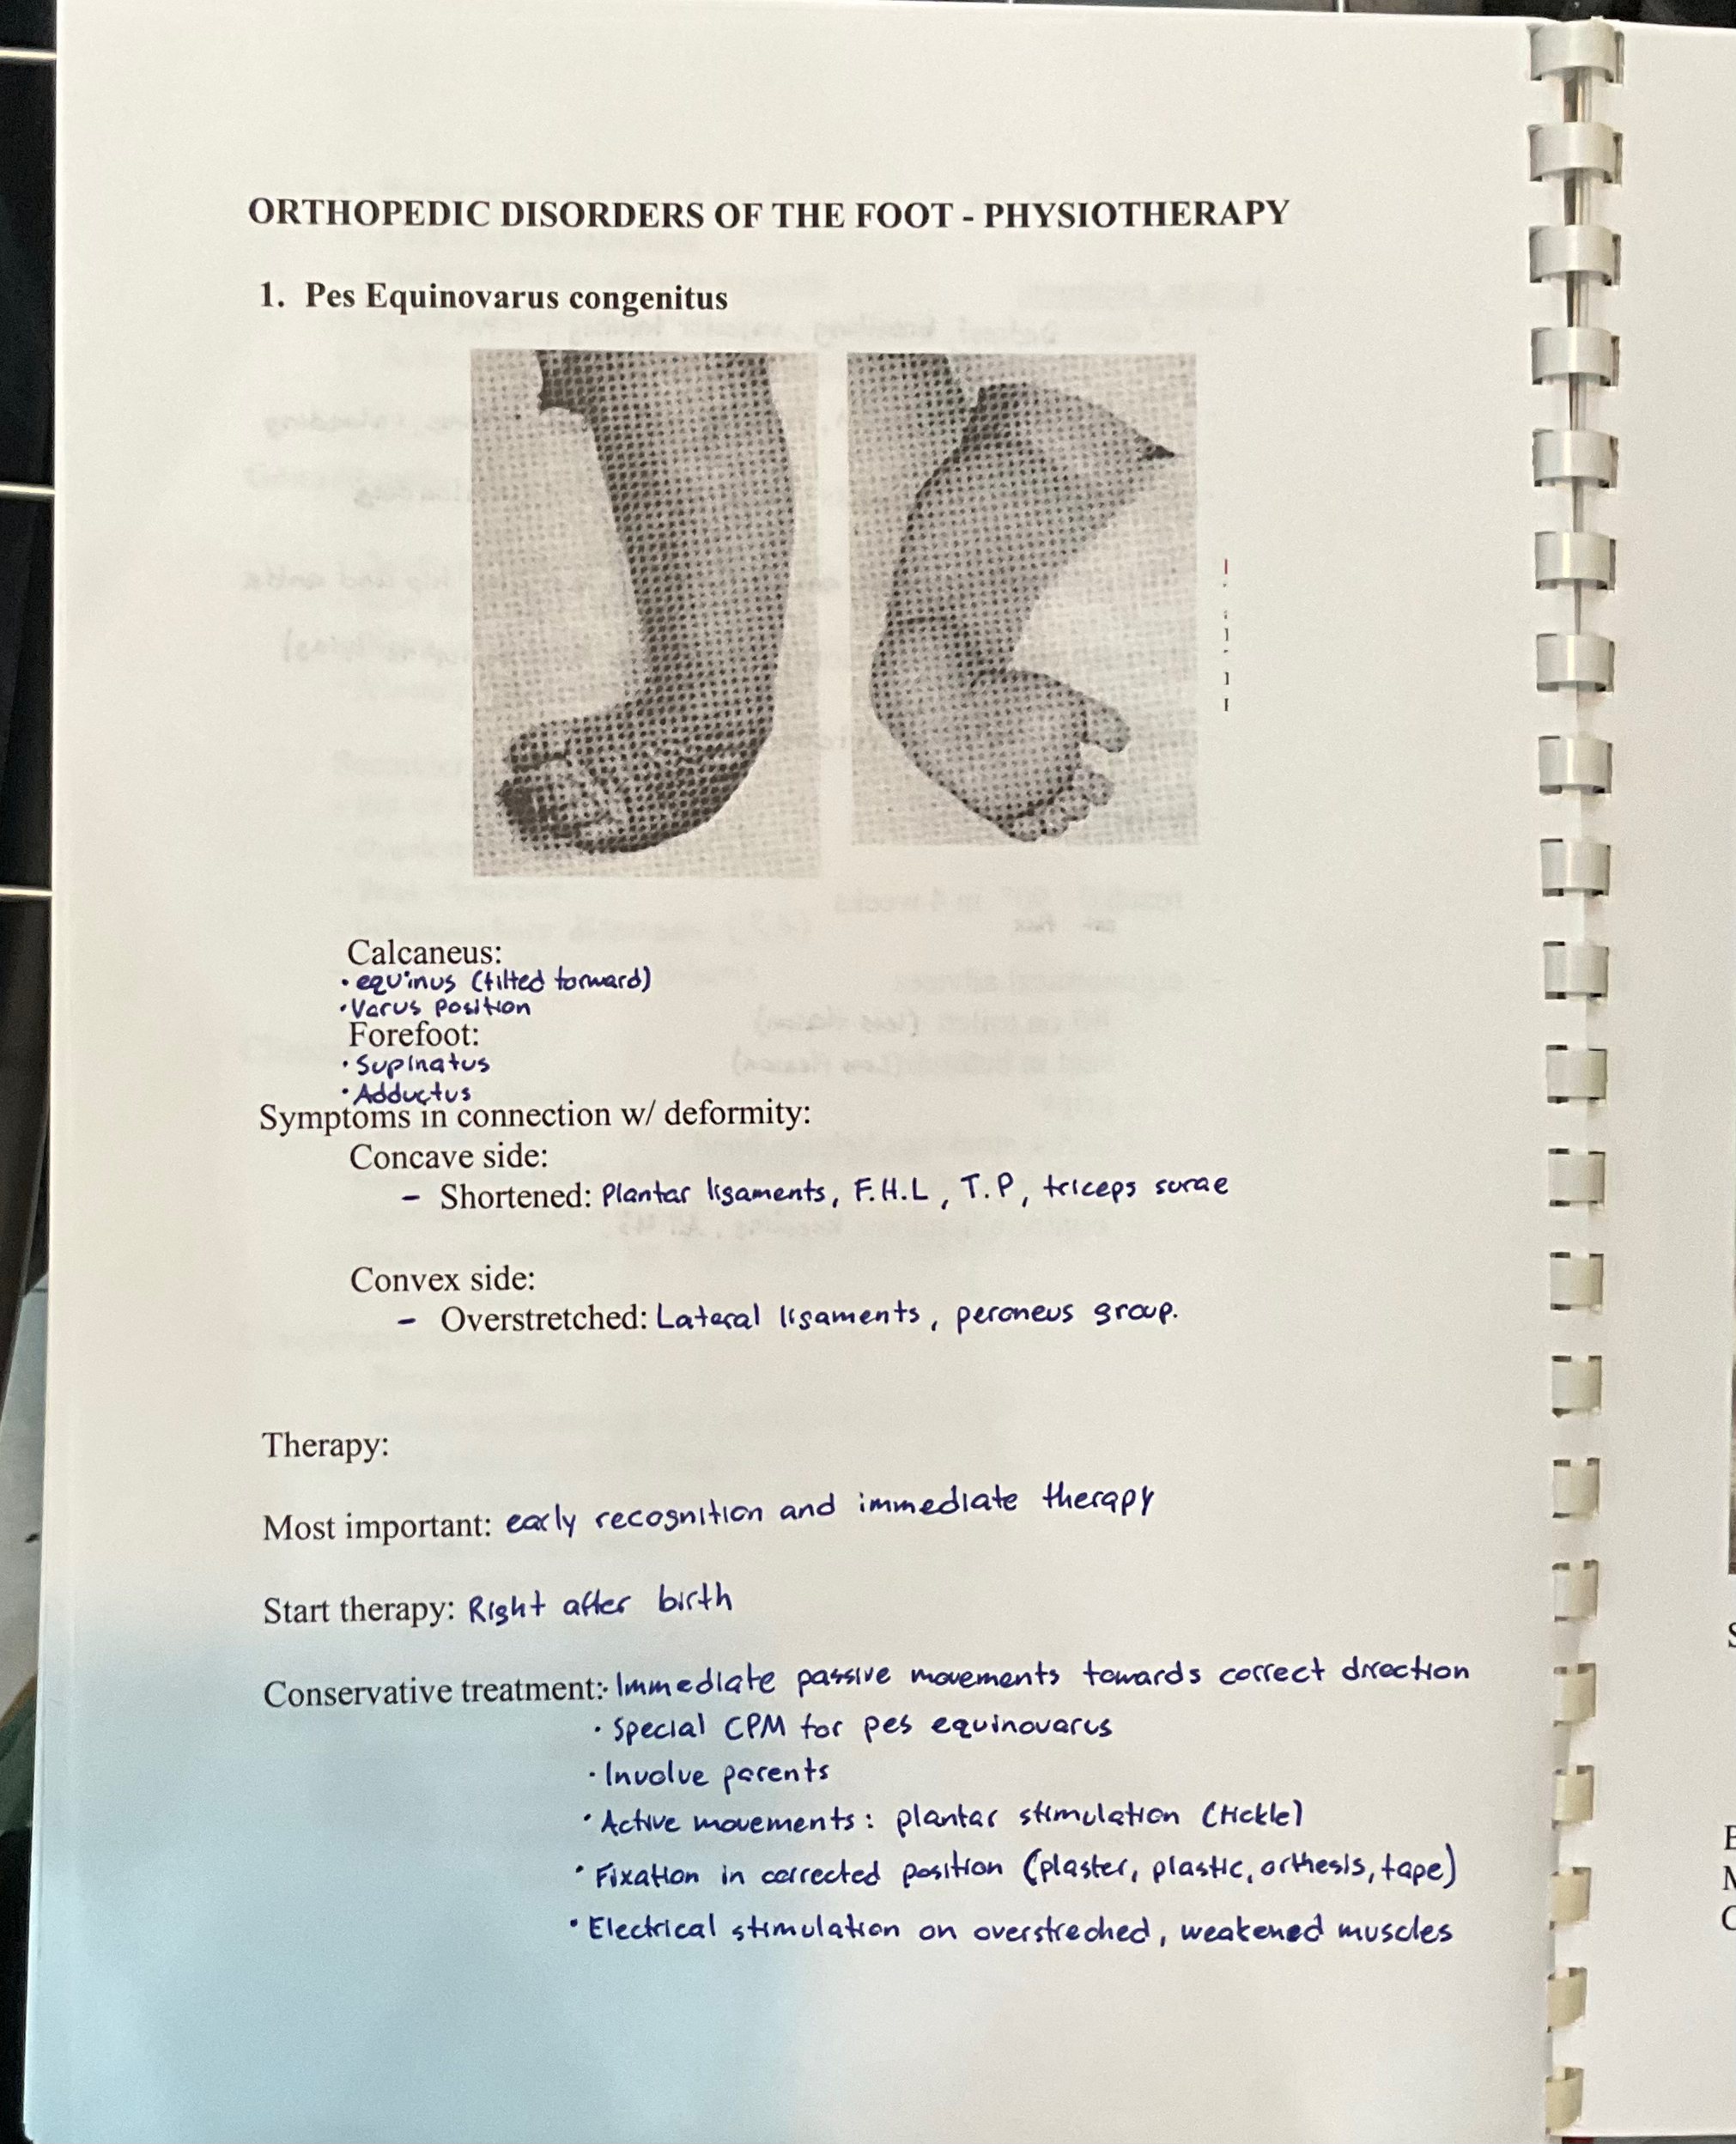 ORTHOPEDIC DISORDERS OF THE FOOT - PHYSIOTHERAPY
1. Pes Equinovarus congenitus
Calcaneus:
• equinus (tilted forward)
• Varus position
Forefoot:
• Supinatus
• Adductus
Symptoms in connection w/ deformity:
Concave side:
- Shortened: Plantar ligaments, F.H.L, T.P, triceps surae
Convex side:
- Overstretched: Lateral ligaments, peroneus group.
Therapy:
Most important: early recognition and immediate therapy
Start therapy: Right after birth
Conservative treatment: • Immediate passive movements towards correct direction
• Special CPM for pes equinovarus
• Involve parents
• Active movements: plantar stimulation (tickle)
• Fixation in corrected position (plaster, plastic, orthesis, tape)
• Electrical stimulation on overstreched, weakened muscles